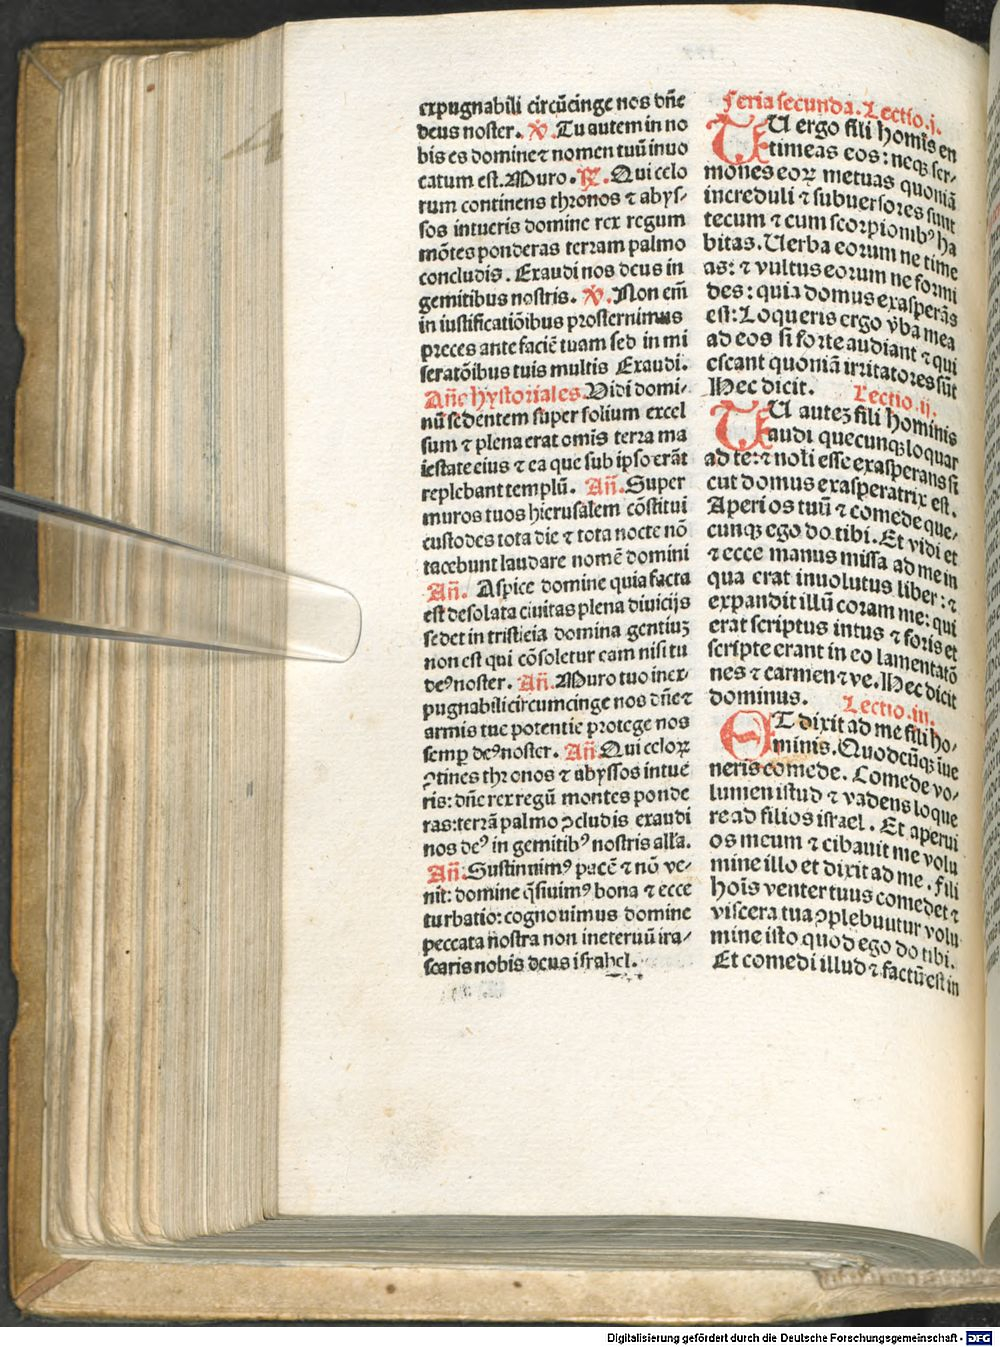 expugnabili circūcinge nos dn̄e
deus noster. V̇. Tu autem in no
bis es domine ⁊ nomen tuū inuo
catum est. Muro. R̷. Qui celo
rum continens thronos ⁊ abys-
sos intueris domine rex regum
mōtes ponderas terram palmo
concludis. Exaudi nos deus in
gemitibus nostris. V̇. Non em̄
in iustificatiōibus prosternimus
preces ante faciē tuam sed in mi
seratōibus tuis multis Exaudi.
An̄e hystoriales. Vidi domi-
nū sedentem super solium excel
sum ⁊ plena erat omis terra ma
iestate eius ⁊ ea que sub ipso erāt
replebant templū. An̄. Super
muros tuos hierusalem cōstitui
custodes tota die ⁊ tota nocte nō
tacebunt laudare nomē domini
An̄. Aspice domine quia facta
est desolata ciuitas plena diuicijs
sedet in tristicia domina gentiuꝫ
non est qui cōsoletur eam nisi tu
deꝰ noster. An̄. Muro tuo inex-
pugnabili circumcinge nos dn̄e ⁊
armis tue potentie protege nos
semꝑ deꝰ noster. An̄. Qui celoꝝ
ꝯtines thronos ⁊ abyssos intue
ris: dn̄e rex regū montes ponde
ras: terrā palmo ꝯcludis exaudi
nos deꝰ in gemitibꝰ nostris all'a.
An̄. Sustinuimꝰ pacē ⁊ nō ve-
nit: domine q̄siuimꝰ bona ⁊ ecce
turbatio: cognouimus domine
peccata nostra non ineternū ira-
scaris nobis deus israhel.
Feria secunda. Lectio .j.
TU ergo fili homīs en
timeas eos: neqꝫ ser-
mones eoꝝ metuas quoniā
increduli ⁊ subuersores sunt
tecum ⁊ cum scorpionibꝰ ha
bitas. Uerba eorum ne time
as: ⁊ vultus eorum ne formi
des: quia domus exasperās
est: Loqueris ergo v̄ba mea
ad eos si forte audiant ⁊ qui
escant quoniā irritatores sūt
Hec dicit. Lectio .ij.
TU auteꝫ fili hominis
audi quecunqꝫ loquar
ad te: ⁊ noli esse exasperans si
cut domus exasperatrix est.
Aperi os tuū ⁊ comede que-
cunqꝫ ego do tibi. Et vidi et
⁊ ecce manus missa ad me in
qua erat inuolutus liber: ⁊
expandit illū coram me: qui
erat scriptus intus ⁊ foris et
scripte erant in eo lamentatō
nes ⁊ carmen ⁊ ve. Hec dicit
dominus. Lectio .iij.
ET dixit ad me fili ho-
minis. Quodcūqꝫ īue
neris comede. Comede vo-
lumen istud ⁊ vadens loque
re ad filios israel. Et aperui
os meum ⁊ cibauit me volu
mine illo et dixit ad me. Fili
hoīs venter tuus comedet ⁊
viscera tua ꝯplebuutur volu
mine isto quod ego do tibi.
Et comedi illud ⁊ factū est in
Digitalisierung gefördert durch die Deutsche Forschungsgemeinschaft - DFG